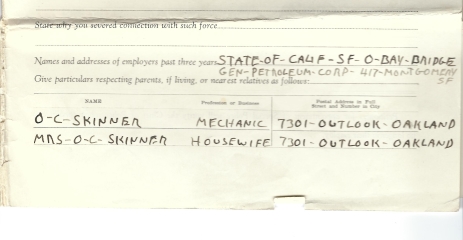 State why you severed connection with such force
Names and addresses of employers past three years STATE-OF-CALIF-SF-O-BAY-BRIDGE
GEN-PETROLEUM-CORP- 417-MONTGOMERY
Give particulars respecting parents, if living, or nearest relatives as follows: SF
NAME Profession or Business Postal Address in Full
Street and Number in City
O-C-SKINNER MECHANIC 7301-OUTLOOK-OAKLAND
MRS-O-C-SKINNER HOUSEWIFE 7301-OUTLOOK-OAKLAND